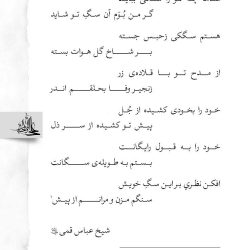 گر من بُوَم آن سگِ تو شاید
هستم سگکی ز حبس جسته
بر شاخ گل هوات بسته
از مدح تو با قلاده‌ی زر
زنجیر وفا بحلقم اندر
خود را بخودی کشیده از جُل
پیش تو کشیده از سر ذل
خود را به قبول رایگانت
بستم به طویله‌ی سگانت
افکن نظری بر این سگ خویش
سنگم مزن و مرانم از پیش
شیخ عباس قمی